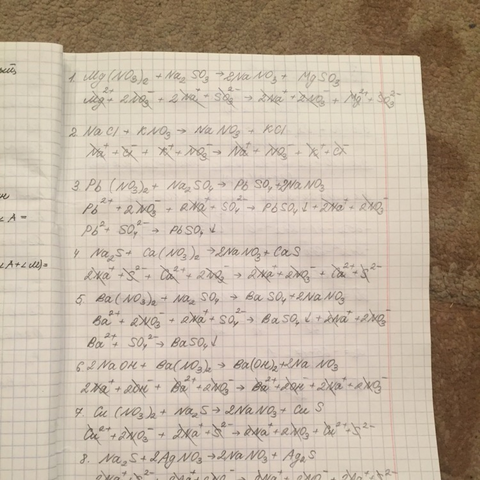 1. Mg(NO₃)₂ + Na₂SO₃ → 2NaNO₃ + MgSO₃
Mg²⁺ + 2NO₃⁻ + 2Na⁺ + SO₃²⁻ → 2Na⁺ + 2NO₃⁻ + Mg²⁺ + SO₃²⁻
2. NaCl + KNO₃ → NaNO₃ + KCl
Na⁺ + Cl⁻ + K⁺ + NO₃⁻ → Na⁺ + NO₃⁻ + K⁺ + Cl⁻
3. Pb(NO₃)₂ + Na₂SO₄ → PbSO₄ + 2NaNO₃
Pb²⁺ + 2NO₃⁻ + 2Na⁺ + SO₄²⁻ → PbSO₄↓ + 2Na⁺ + 2NO₃⁻
Pb²⁺ SO₄²⁻ → PbSO₄↓
4. Na₂S + Ca(NO₃)₂ → 2NaNO₃ + CaS
2Na⁺ + S²⁻ + Ca²⁺ + 2NO₃⁻ → 2Na⁺ + 2NO₃⁻ + Ca²⁺ + S²⁻
5. Ba(NO₃)₂ + Na₂SO₄ → BaSO₄ + 2NaNO₃
Ba²⁺ + 2NO₃⁻ + 2Na⁺ + SO₄²⁻ → BaSO₄↓ + 2Na⁺ + 2NO₃⁻
Ba²⁺ + SO₄²⁻ → BaSO₄↓
6. 2NaOH + Ba(NO₃)₂ → Ba(OH)₂ + 2NaNO₃
2Na⁺ + 2OH⁻ + Ba²⁺ + 2NO₃⁻ → Ba²⁺ + 2OH⁻ + 2Na⁺ + 2NO₃⁻
7. Cu(NO₃)₂ + Na₂S → 2NaNO₃ + CuS
Cu²⁺ + 2NO₃⁻ + 2Na⁺ + S²⁻ → 2Na⁺ + 2NO₃⁻ + Cu²⁺ + S²⁻
8. Na₂S + 2AgNO₃ → 2NaNO₃ + Ag₂S
∠A =
∠A + ∠M) =